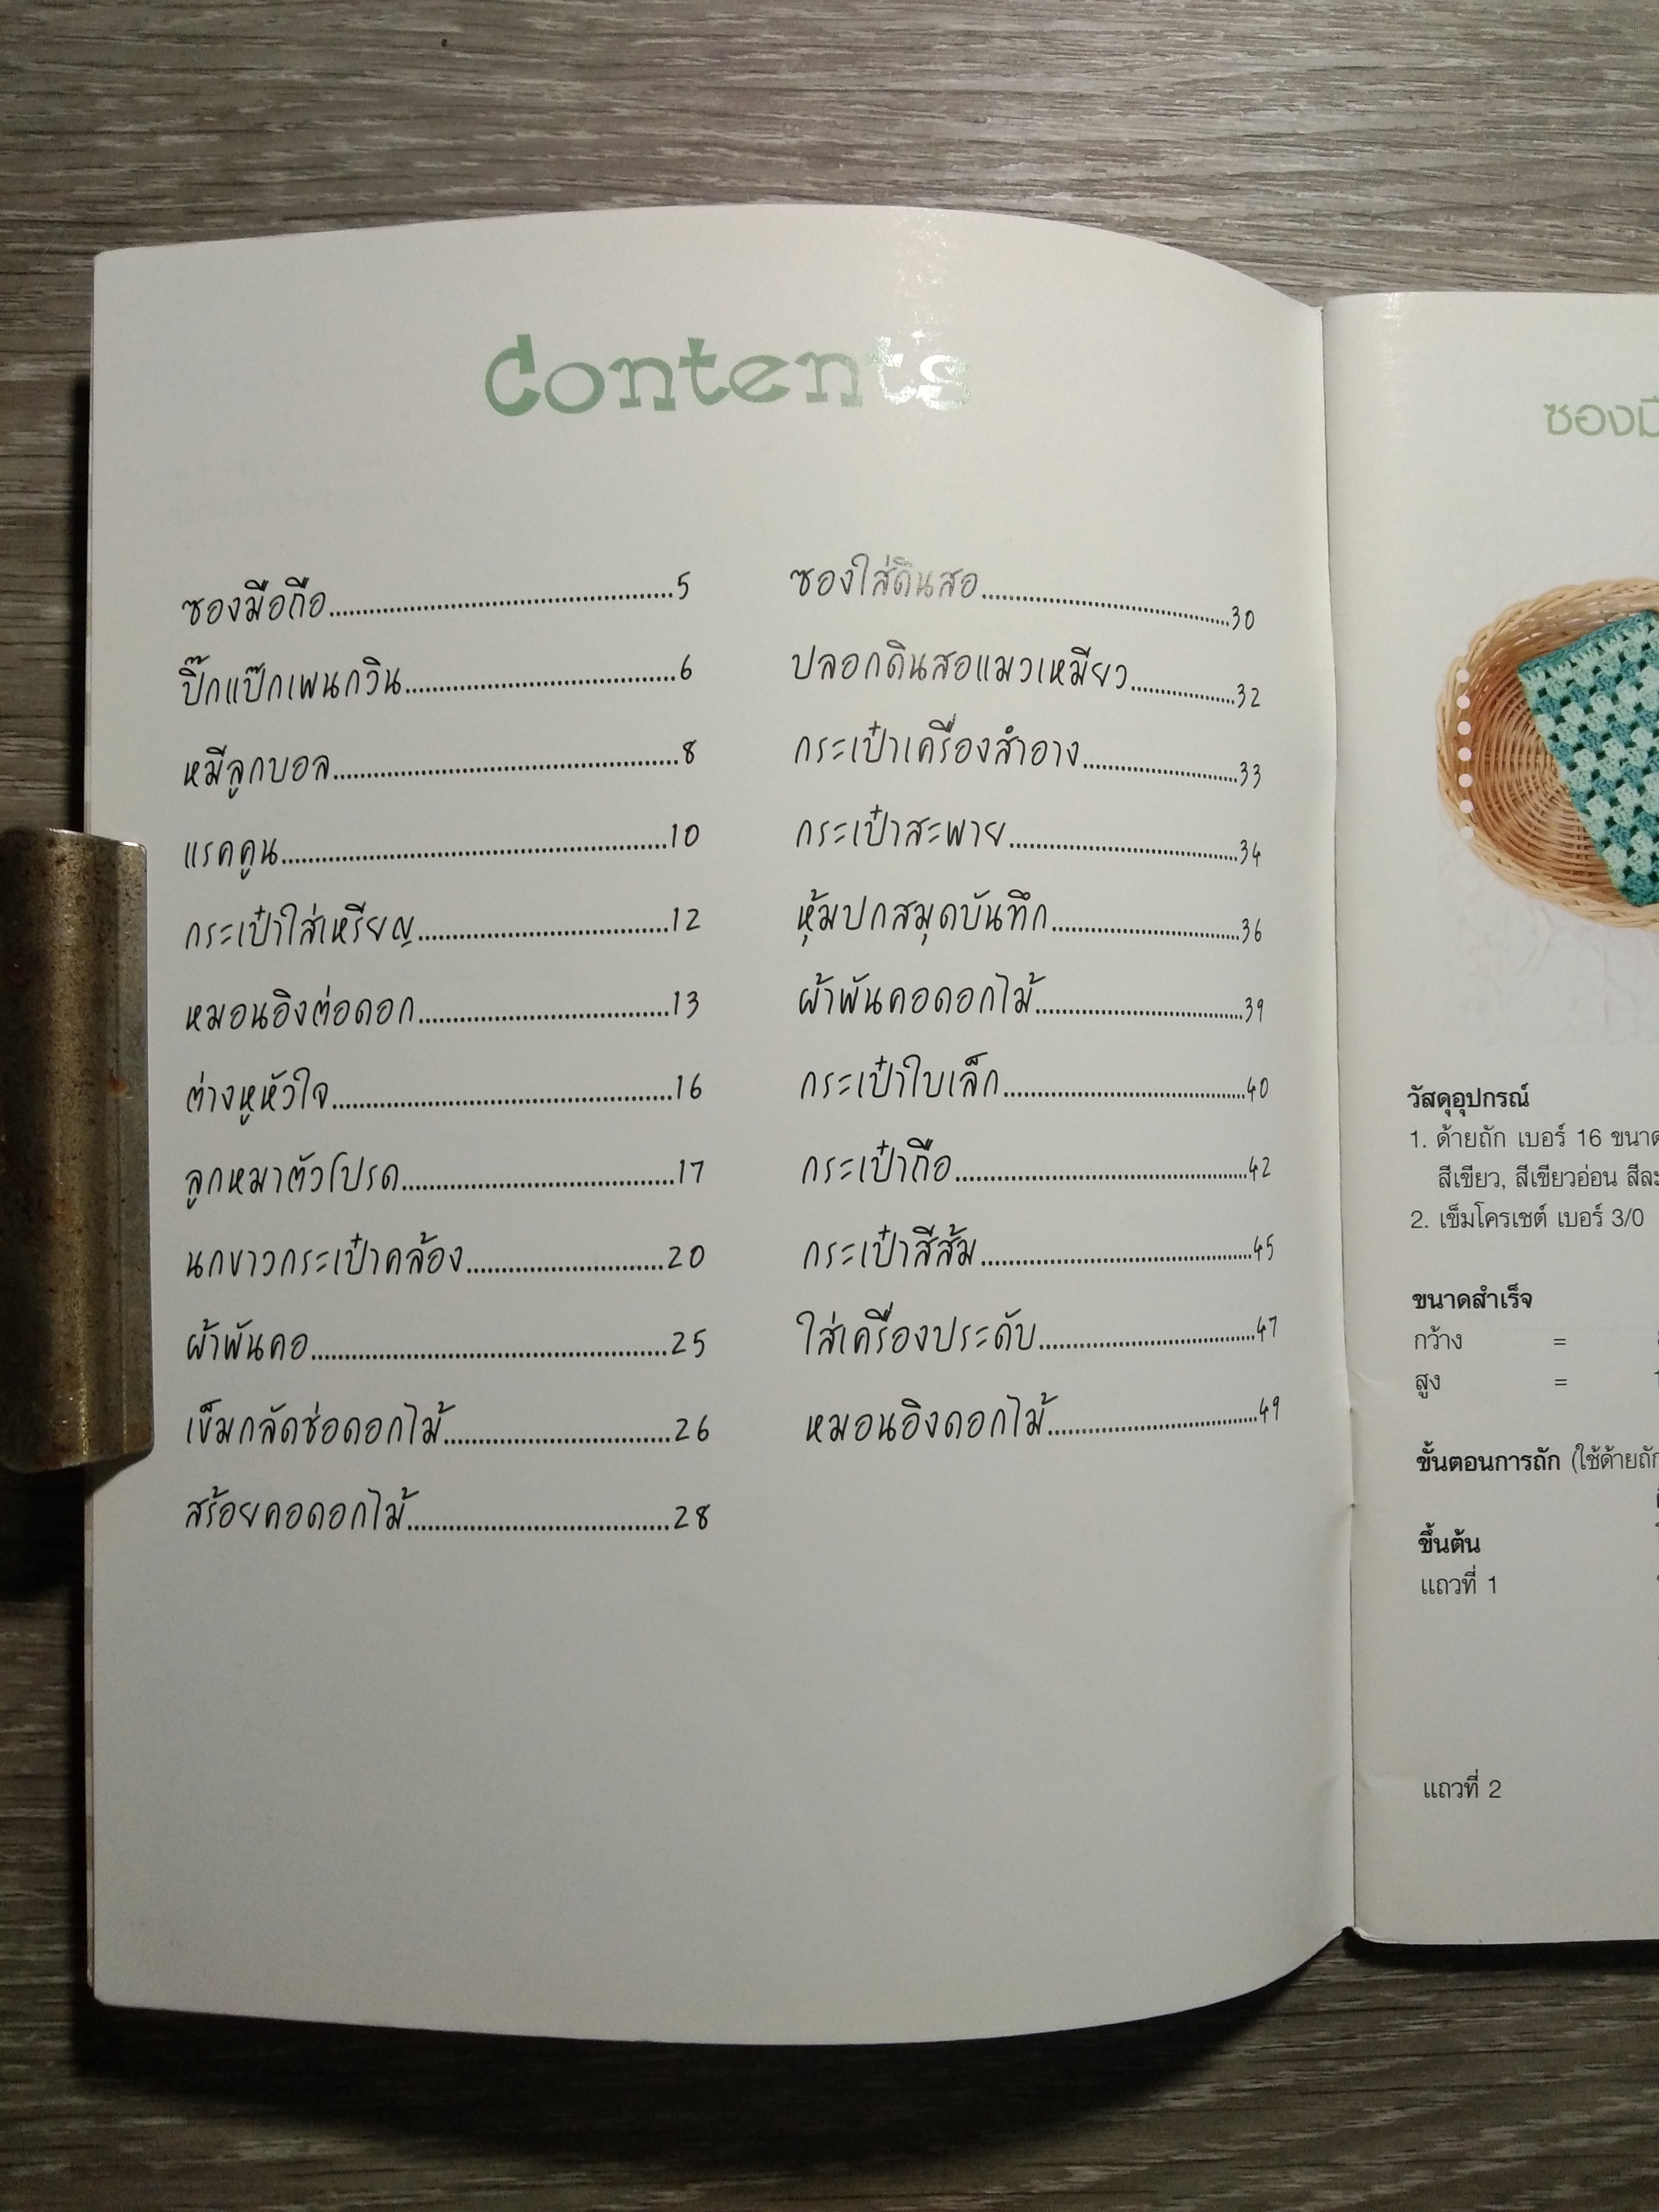 Contents
ซองมือถือ....................5
ปิ๊กแป๊กเพนกวิน....................6
หมีลูกบอล....................8
แรคคูน....................10
กระเป๋าใส่เหรียญ....................12
หมอนอิงต่อดอก....................13
ต่างหูหัวใจ....................16
ลูกหมาตัวโปรด....................17
นกขาวกระเป๋าคล้อง....................20
ผ้าพันคอ....................25
เข็มกลัดช่อดอกไม้....................26
สร้อยคอดอกไม้....................28
ซองใส่ดินสอ....................30
ปลอกดินสอแมวเหมียว....................32
กระเป๋าเครื่องสำอาง....................33
กระเป๋าสะพาย....................34
หุ้มปกสมุดบันทึก....................36
ผ้าพันคอดอกไม้....................39
กระเป๋าใบเล็ก....................40
กระเป๋าถือ....................42
กระเป๋าสีส้ม....................45
ใส่เครื่องประดับ....................47
หมอนอิงดอกไม้....................49
วัสดุอุปกรณ์
1. ด้ายถัก เบอร์ 16 ขนาด
สีเขียว, สีเขียวอ่อน
2. เข็มโครเชต์ เบอร์ 3/0
ขนาดสำเร็จ
กว้าง =
สูง =
ขั้นตอนการถัก (ใช้ด้ายถัก
ขึ้นต้น
แถวที่ 1
แถวที่ 2